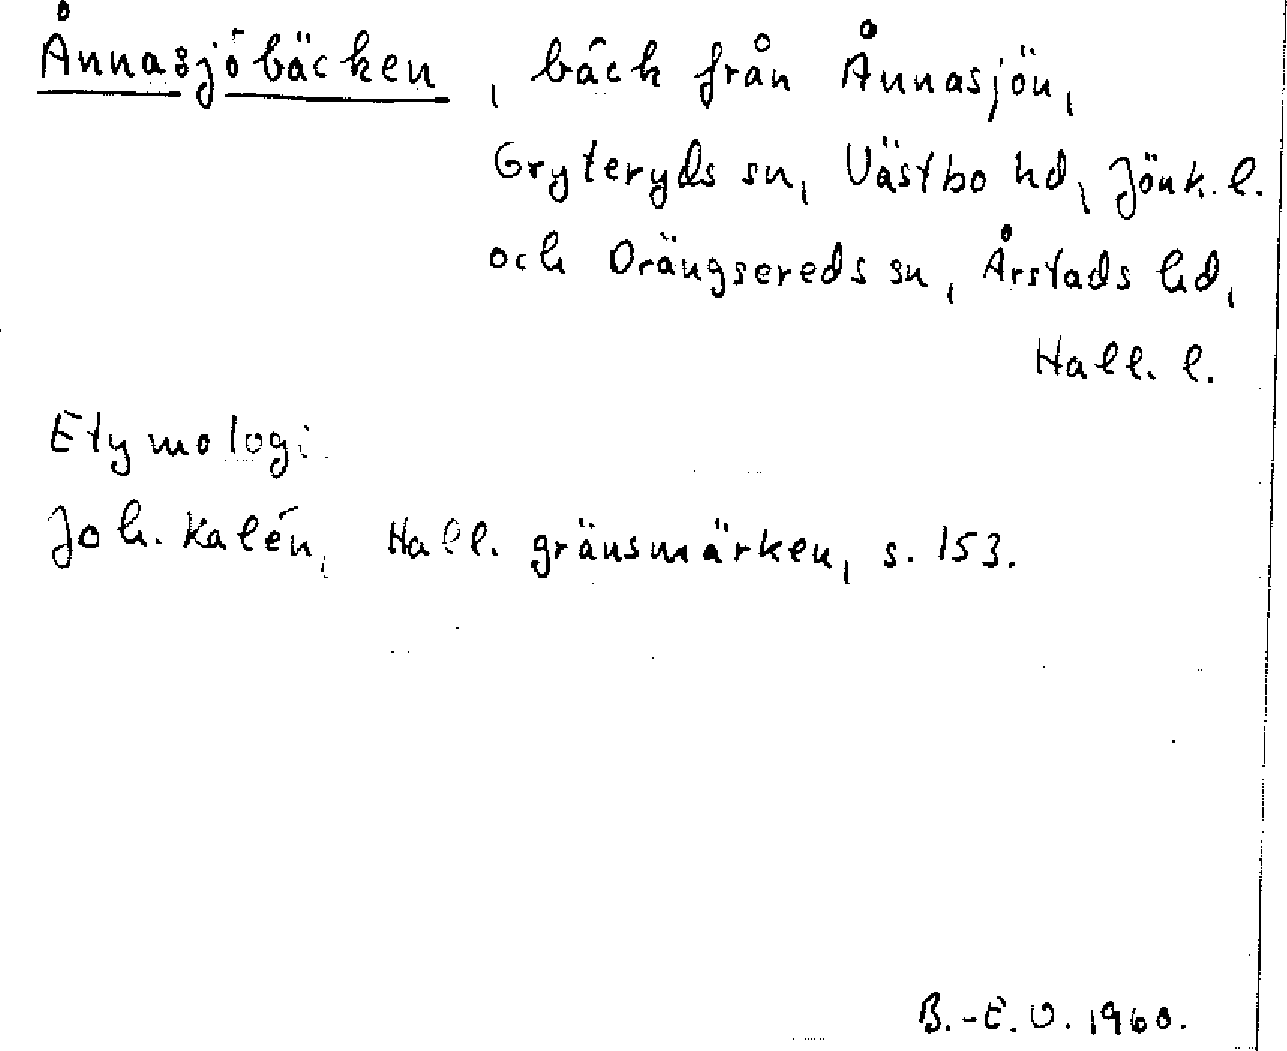 Ånnasjöbäcken, bäck från Ånnasjön,
Gryteryds sn, Västbo hd, Jönk. l.
och Drängsereds sn, Årstads hd,
Hall. l.
Etymologi
Joh. Kalén, Hall. gränsmärken, s. 153.
B.-E. O. 1960.